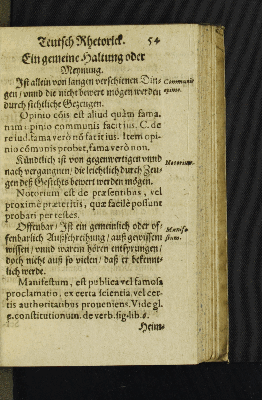 Teutsch Rhetorick. 54
Ein gemeine Haltung oder
Meynung.
Ist allein von langen verschienen Din-
gen / vnnd die nicht bewert mögen werden
durch sichtliche Gezeugen.
Communis
opinio.
Opinio cõis est aliud quàm fama.
nam opinio communis facit ius. C. de
re iud. fama verò nõ facit ius. Item opi-
nio cõmunis probat, fama verò non.
Kündtlich ist von gegenwertigen vnnd
nach vergangnen / die leichtlich durch Zeu-
gen deß Gesichts bewert werden mögen.
Notorium.
Notorium est de præsentibus, vel
proximè præteritis, quæ facilè possunt
probari per testes.
Offenbar / Ist ein gemeinlich oder of-
fenbarlich Außschreihung / auß gewissem
wissen / vnnd warem hören entsprungen /
doch nicht auß so vielen / daß er bekennt-
lich werde.
Manife-
stum.
Manifestum, est publica vel famosa
proclamatio, ex certa scientia vel cer-
tis authoritatibus proueniens. Vide gl.
g. constitutionum. de verb. sig. lib. 6.
Heim-